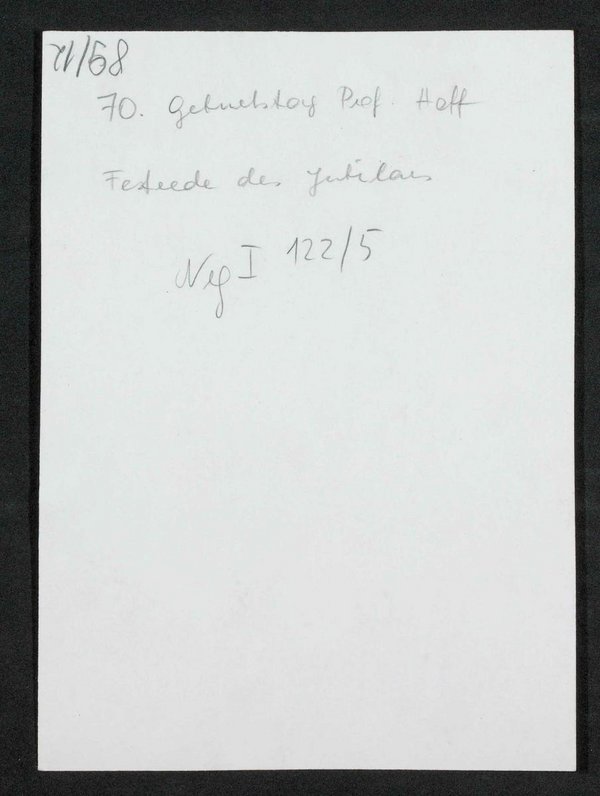 70. Geburtstag Prof. Hoff
Festrede des Jubilars
Neg I 122/5